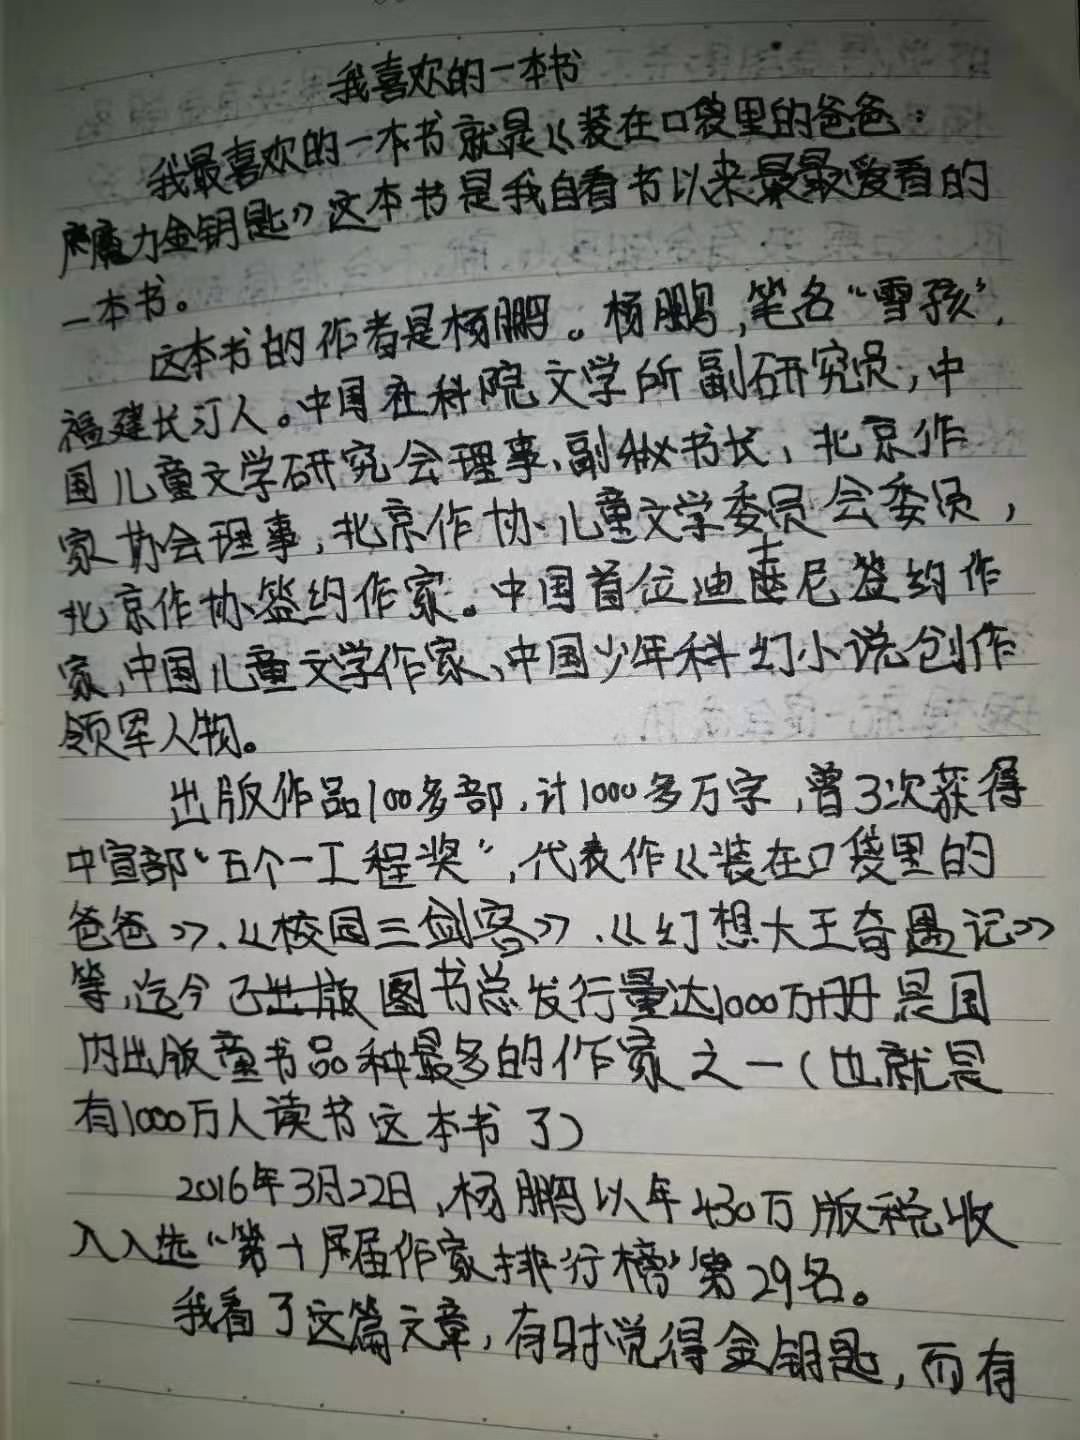 我喜欢的一本书
我最喜欢的一本书就是《装在口袋里的爸爸:
魔力金钥匙》这本书是我自看书以来最最爱看的
一本书。
这本书的作者是杨鹏。杨鹏,笔名“雪孩”,
福建长汀人。中国社科院文学所副研究员,中
国儿童文学研究会理事、副秘书长,北京作
家协会理事,北京作协儿童文学委员会委员,
北京作协签约作家。中国首位迪士尼签约作
家,中国儿童文学作家、中国少年科幻小说创作
领军人物。
出版作品100多部,计1000多万字,曾3次获得
中宣部“五个一工程奖”,代表作《装在口袋里的
爸爸》、《校园三剑客》、《幻想大王奇遇记》
等,迄今已出版图书总发行量达1000万册,是国
内出版童书品种最多的作家之一(也就是
有1000万人读书这本书了)
2016年3月22日,杨鹏以年430万版税收
入入选“第十届作家排行榜”第29名。
我看了这篇文章,有时觉得金钥匙,而有